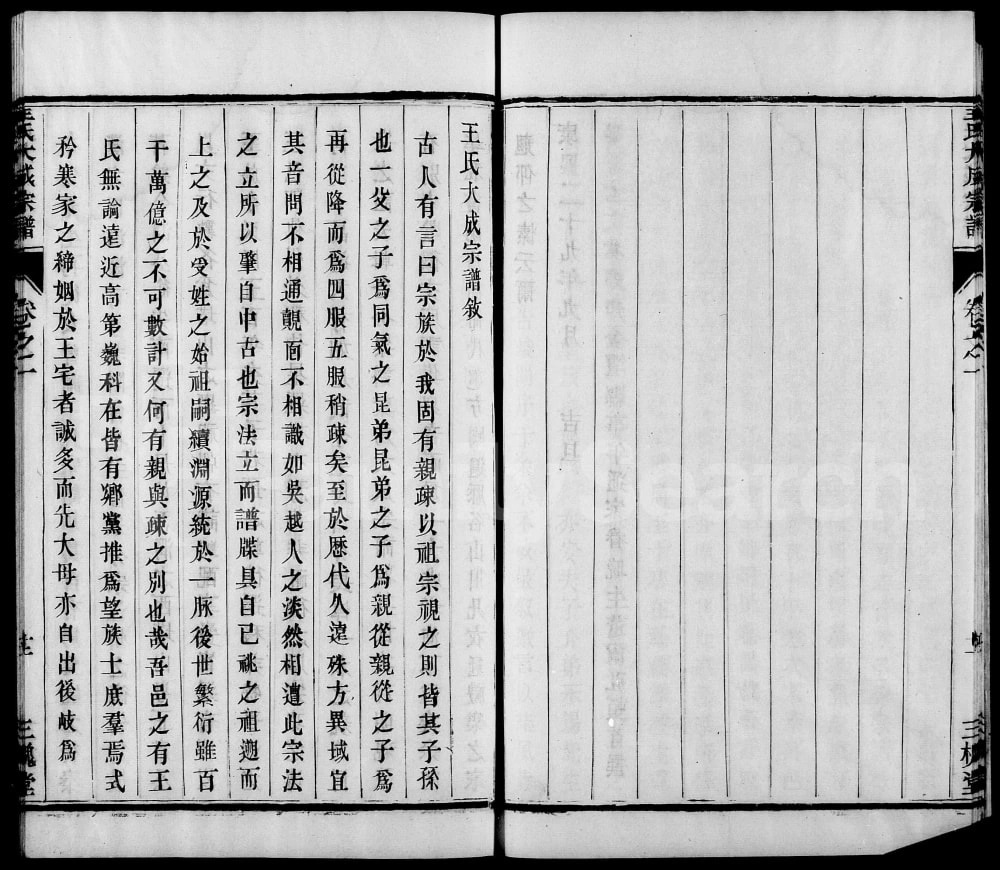 王氏大成宗譜
卷之一
三槐堂
王氏大成宗譜敘
古人有言曰宗族於我固有親疎以祖宗視之則皆其子孫
也一父之子爲同氣之昆弟昆弟之子爲親從親從之子爲
再從降而爲四服五服稍疎矣至於歷代久遠殊方異域宜
其音問不相通覿面不相識如吳越人之淡然相遭此宗法
之立所以肇自中古也宗法立而譜牒具自己祧之祖遡而
上之及於受姓之始祖嗣續淵源統於一脉後世繁衍雖百
千萬億之不可數計又何有親與疎之別也哉吾邑之有王
氏無論遠近高第巍科在皆有鄉黨推爲望族士庶羣焉式
矜寒家之締姻於王宅者誠多而先大母亦自出後岐爲
王氏大成宗譜
卷之一
三槐堂